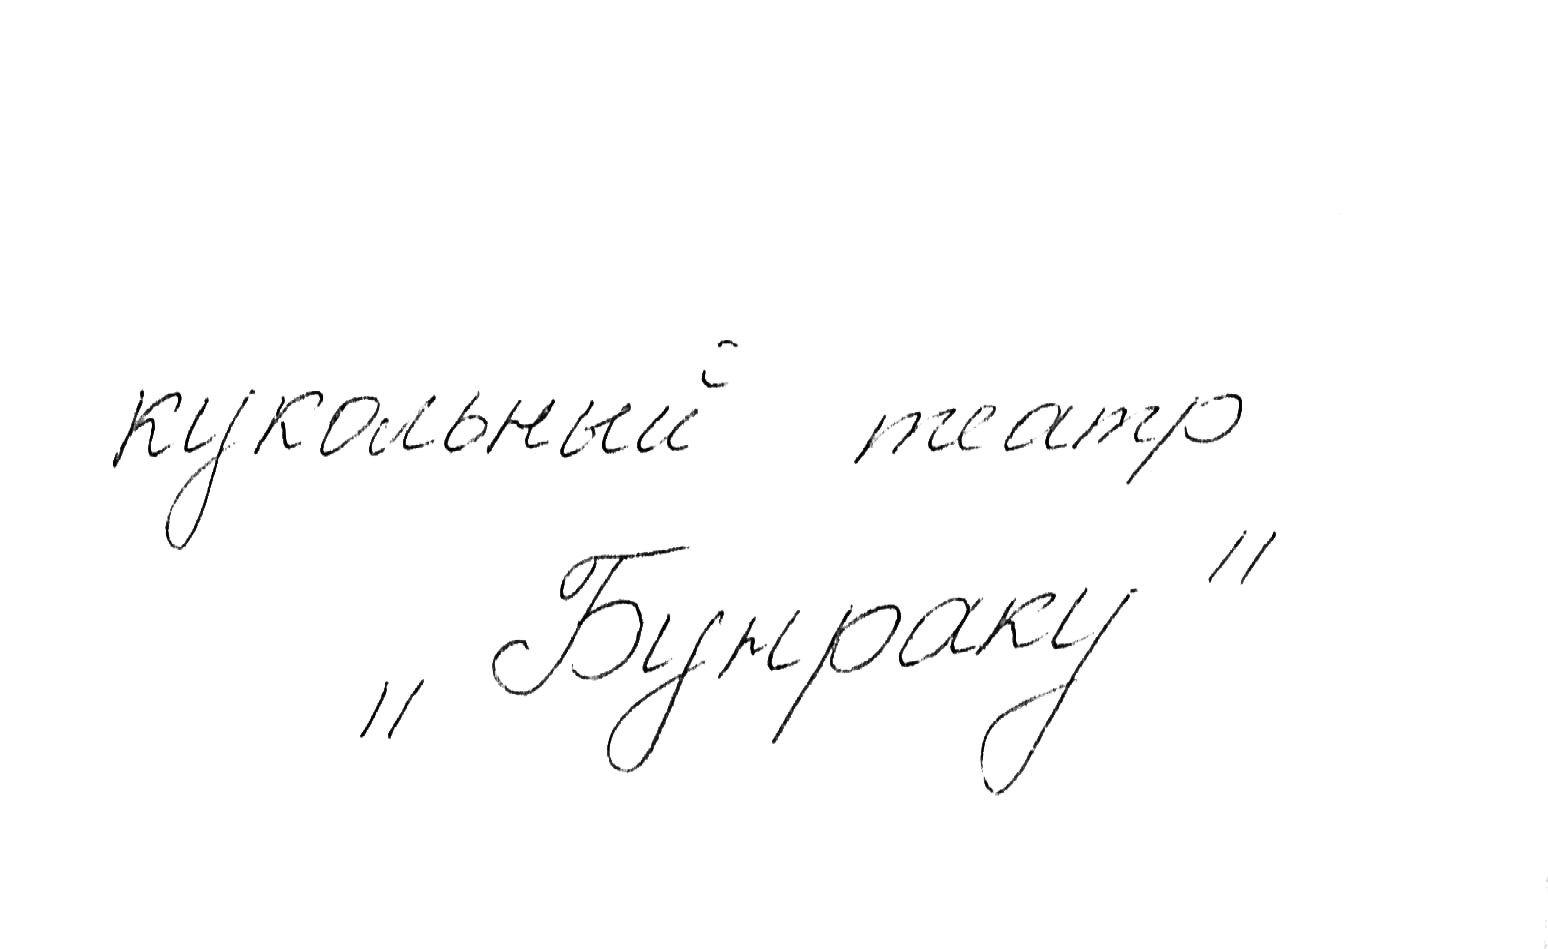 кукольный театр
„Бунраку"